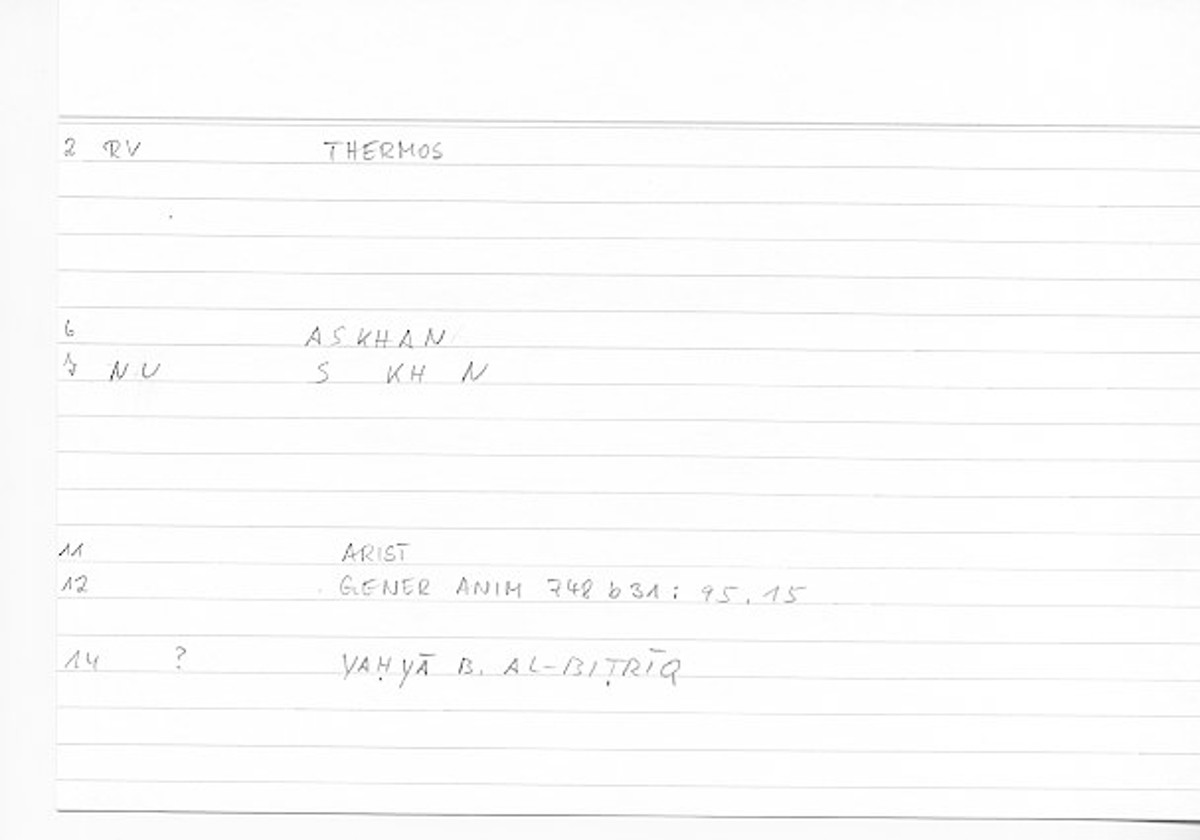 2 RV THERMOS
6 ASKHAN
7 NU S KH N
11 ARIST
12 GENER ANIM 748 b 31 : 95, 15
14 ? YAḤYĀ B. AL-BIṬRĪQ